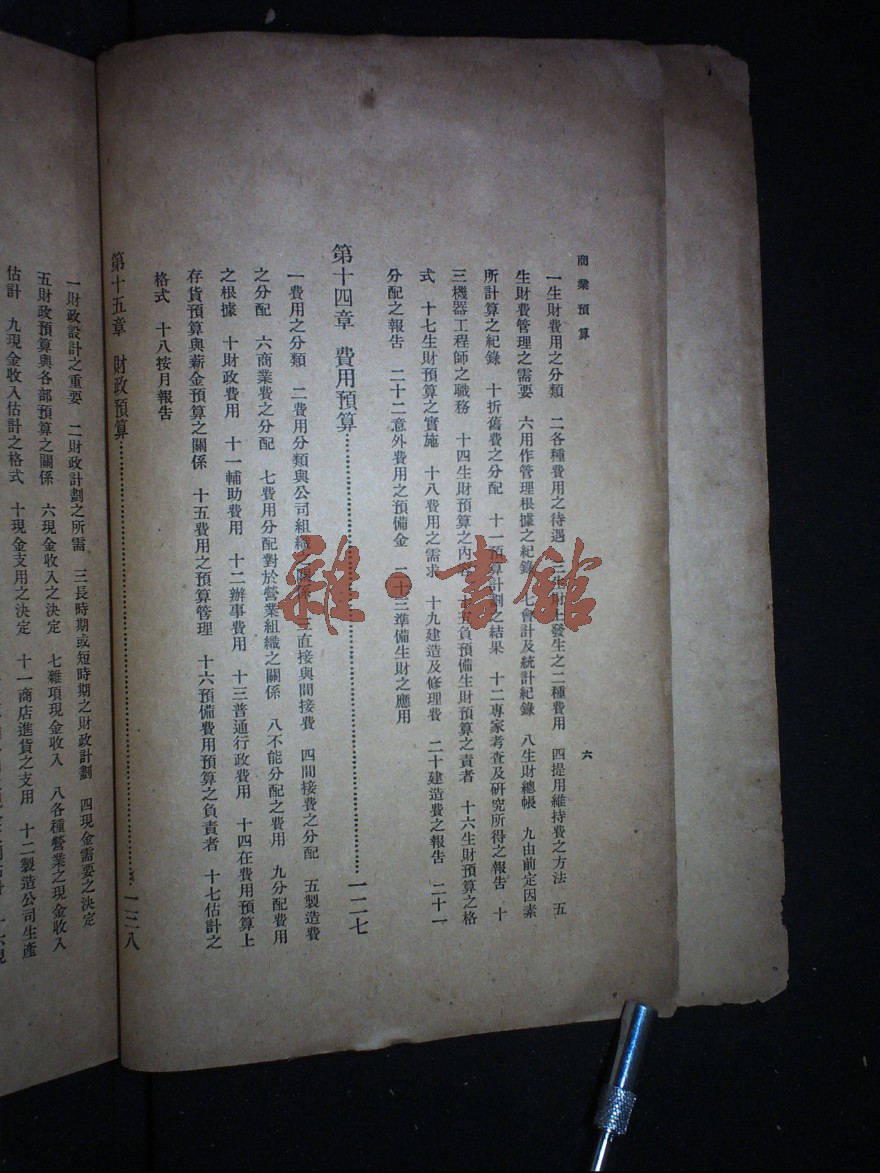 商業預算
六
一生財費用之分類　二各種費用之待遇　三生財上發生之二種費用　四提用維持費之方法　五
生財費管理之需要　六用作管理根據之紀錄　七會計及統計紀錄　八生財總帳　九由前定因素
所計算之紀錄　十折舊費之分配　十一預算計劃之結果　十二專家考查及研究所得之報告　十
三機器工程師之職務　十四生財預算之內容　十五負預備生財預算之責者　十六生財預算之格
式　十七生財預算之實施　十八費用之需求　十九建造及修理費　二十建造費之報告　二十一
分配之報告　二十二意外費用之預備金　二十三準備生財之應用
第十四章　費用預算……一二七
一費用之分類　二費用分類與公司組織之關係　三直接與間接費　四間接費之分配　五製造費
之分配　六商業費之分配　七費用分配對於營業組織之關係　八不能分配之費用　九分配費用
之根據　十財政費用　十一輔助費用　十二辦事費用　十三普通行政費用　十四在費用預算上
存貨預算與薪金預算之關係　十五費用之預算管理　十六預備費用預算之負責者　十七估計之
格式　十八按月報告
第十五章　財政預算……一三八
一財政設計之重要　二財政計劃之所需　三長時期或短時期之財政計劃　四現金需要之決定
五財政預算與各部預算之關係　六現金收入之決定　七雜項現金收入　八各種營業之現金收入
估計　九現金收入估計之格式　十現金支用之決定　十一商店進貨之支用　十二製造公司生產
雜·書館